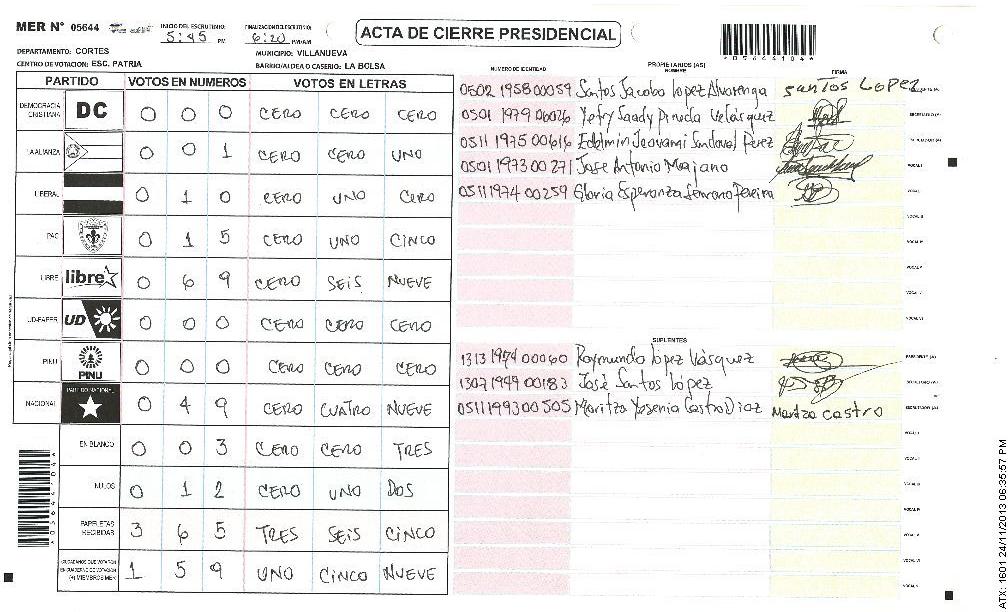 MER N° 05644 INICIO DEL ESCRUTINIO: 5:45 PM FINALIZACION DEL ESCRUTINIO: 6:20 PM/AM
ACTA DE CIERRE PRESIDENCIAL
*05644104*
DEPARTAMENTO: CORTES MUNICIPIO: VILLANUEVA
CENTRO DE VOTACION: ESC. PATRIA BARRIO/ALDEA O CASERIO: LA BOLSA
PARTIDO VOTOS EN NUMEROS VOTOS EN LETRAS
DEMOCRACIA CRISTIANA DC 0 0 0 CERO CERO CERO
LA ALIANZA 0 0 1 CERO CERO UNO
LIBERAL 0 1 0 CERO UNO CERO
PAC 0 1 5 CERO UNO CINCO
LIBRE libre 0 6 9 CERO SEIS NUEVE
UD-FAPER UD 0 0 0 CERO CERO CERO
PINU PINU 0 0 0 CERO CERO CERO
NACIONAL PARTIDO NACIONAL 0 4 9 CERO CUATRO NUEVE
EN BLANCO 0 0 3 CERO CERO TRES
NULOS 0 1 2 CERO UNO DOS
PAPELETAS RECIBIDAS 3 6 5 TRES SEIS CINCO
CIUDADANOS QUE VOTARON EN CUADERNO DE VOTACION (+) MIEMBROS MER 1 5 9 UNO CINCO NUEVE
NUMERO DE IDENTIDAD PROPIETARIOS (AS) NOMBRE FIRMA
0502 1958 00059 Santos Jacobo Lopez Alvorenga Santos Lopez
0501 1979 00026 Yefry Saady Pineda Velásquez SECRETARIO (A)
0511 1975 00616 Edelmin Jeovami Sandoval Perez
0501 1973 00271 Jose Antonio Majano VOCAL I
0511 1974 00259 Gloria Esperanza Serrano Pereira VOCAL II
VOCAL III
VOCAL IV
VOCAL V
VOCAL VI
SUPLENTES
1313 1974 00060 Raymundo López Vásquez PRESIDENTE (A)
1307 1949 00183 José Santos López SECRETARIO (A)
0511 1993 00505 Maritza Yesenia Castro Diaz Maritza Castro ESCRUTADOR (A)
VOCAL I
VOCAL II
VOCAL III
VOCAL IV
VOCAL V
*05644104*
ATX: 1601 24/11/2013 06:35:57 PM